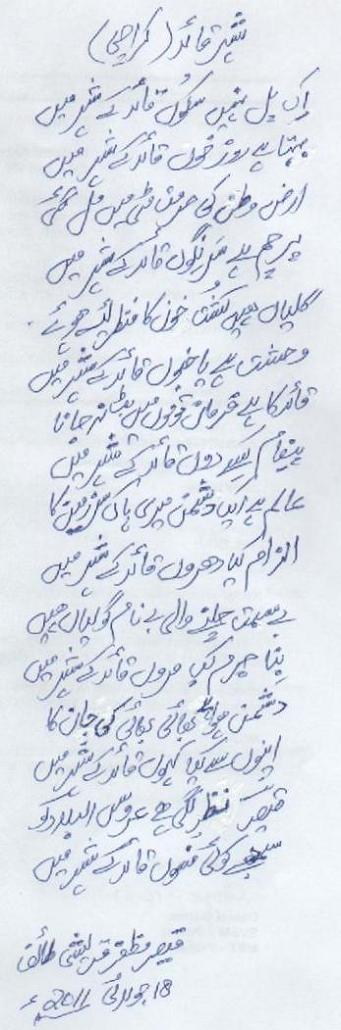 شہرِ قائد (کراچی)
اک پل نہیں سکوں قائد کے شہر میں
بہتا ہے روز خوں قائد کے شہر میں
ارض وطن کی حرمت مٹی میں مل گئی
پرچم ہے سرنگوں قائد کے شہر میں
گلیاں ہیں کُشت خوں کا منظر لئے ہوئے
وحشت ہے یا جنوں قائد کے شہر میں
قائد کا ہے فرمان قوموں میں بٹ نہ جانا
پیغام کسے دوں قائد کے شہر میں
عالم ہے اب دشمن میری پاک سرزمین کا
الزام کیا دھروں قائد کے شہر میں
بے سمت چلنے والی بے نام گولیاں ہیں
بِنا جرم کب مروں قائد کے شہر میں
دشمن ہوا ہے بھائی بھائی کی جان کا
اپنوں سے کیا کہوں قائد کے شہر میں
قیصر نظر لگی ہے عروس البلاد کو
سمجھے کوئی فسوں قائد کے شہر میں
قیصر مظفر قریشی طائف
18 جولائی 2011ء